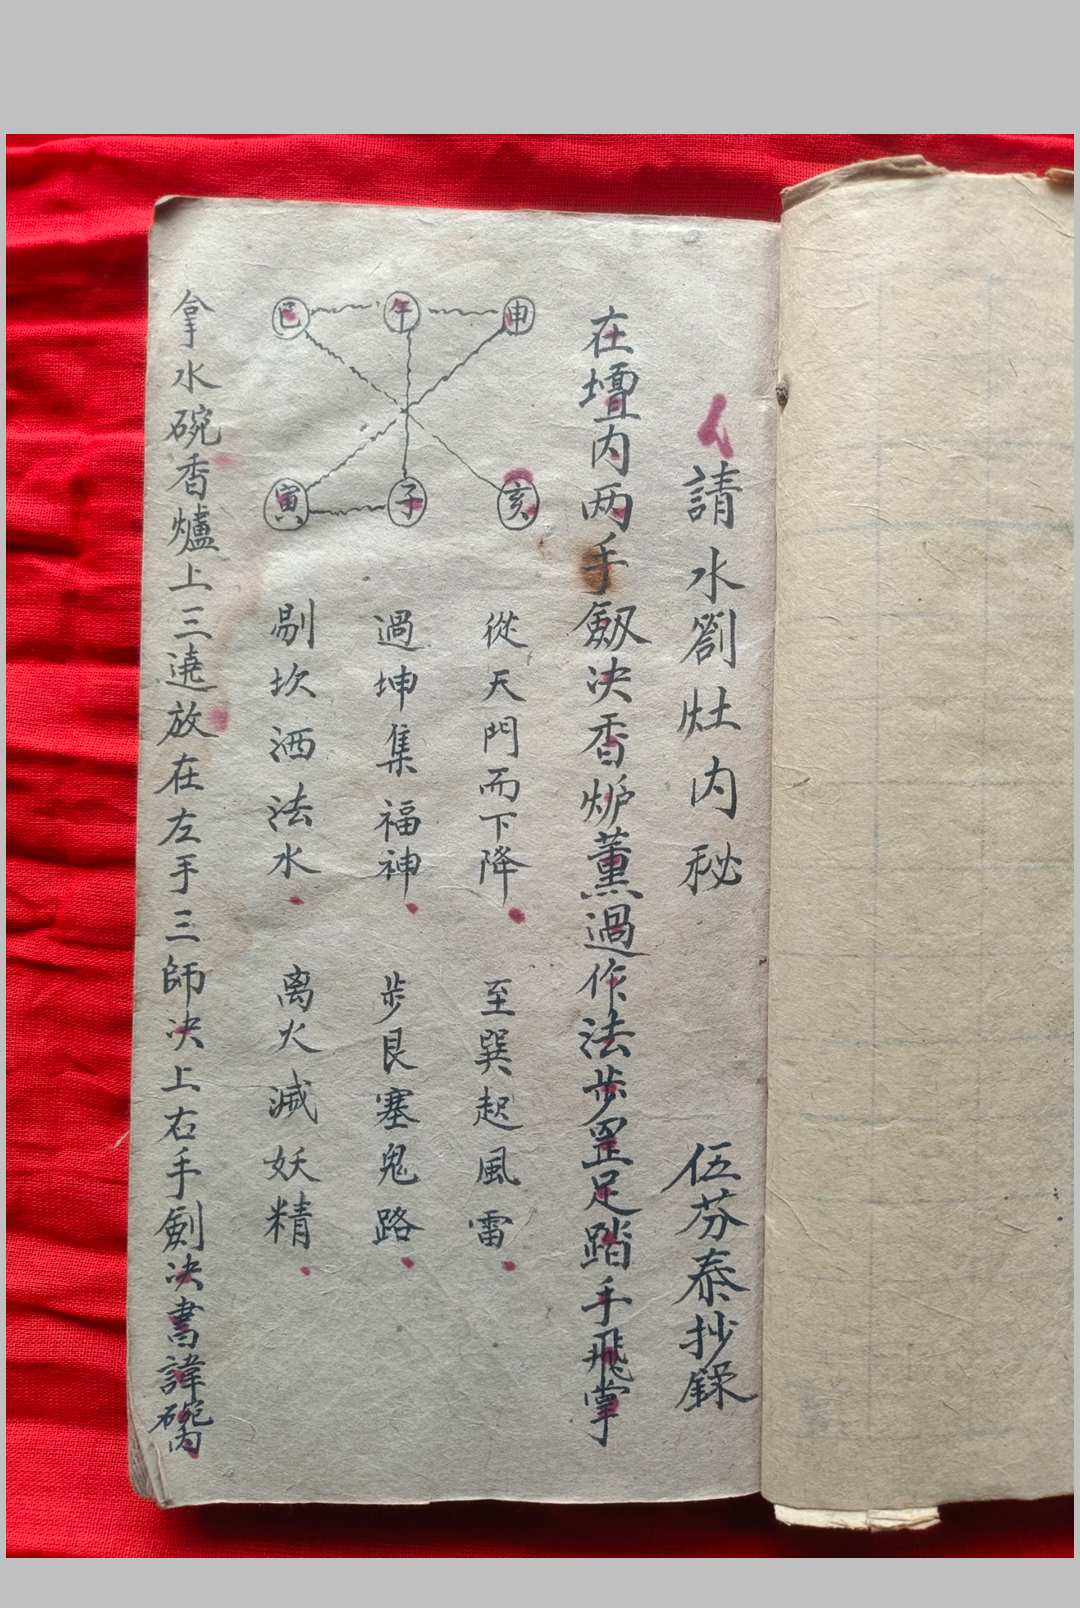 請水劄灶内秘 伍芬泰抄録
在壇内两手劔决香炉薰過作法步罡足踏手飛掌
申 午 巳
亥 子 寅
從天門而下降 至巽起風雷
過坤集福神 步艮塞鬼路
剔坎洒法水 离火滅妖精
拿水碗香爐上三遶放在左手三師决上右手劍决書諱碗内